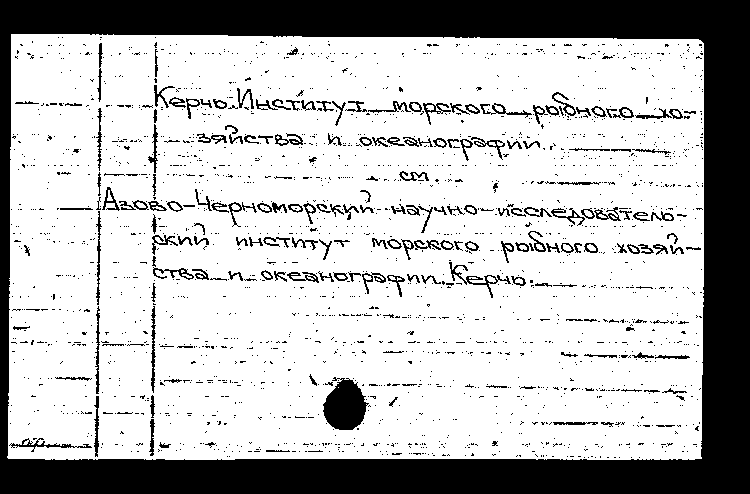 Керчь. Институт морского рыбного хо-
зяйства и океанографии.
см.
Азово-Черноморский научно-исследователь-
ский институт морского рыбного хозяй-
ства и океанографии. Керчь.